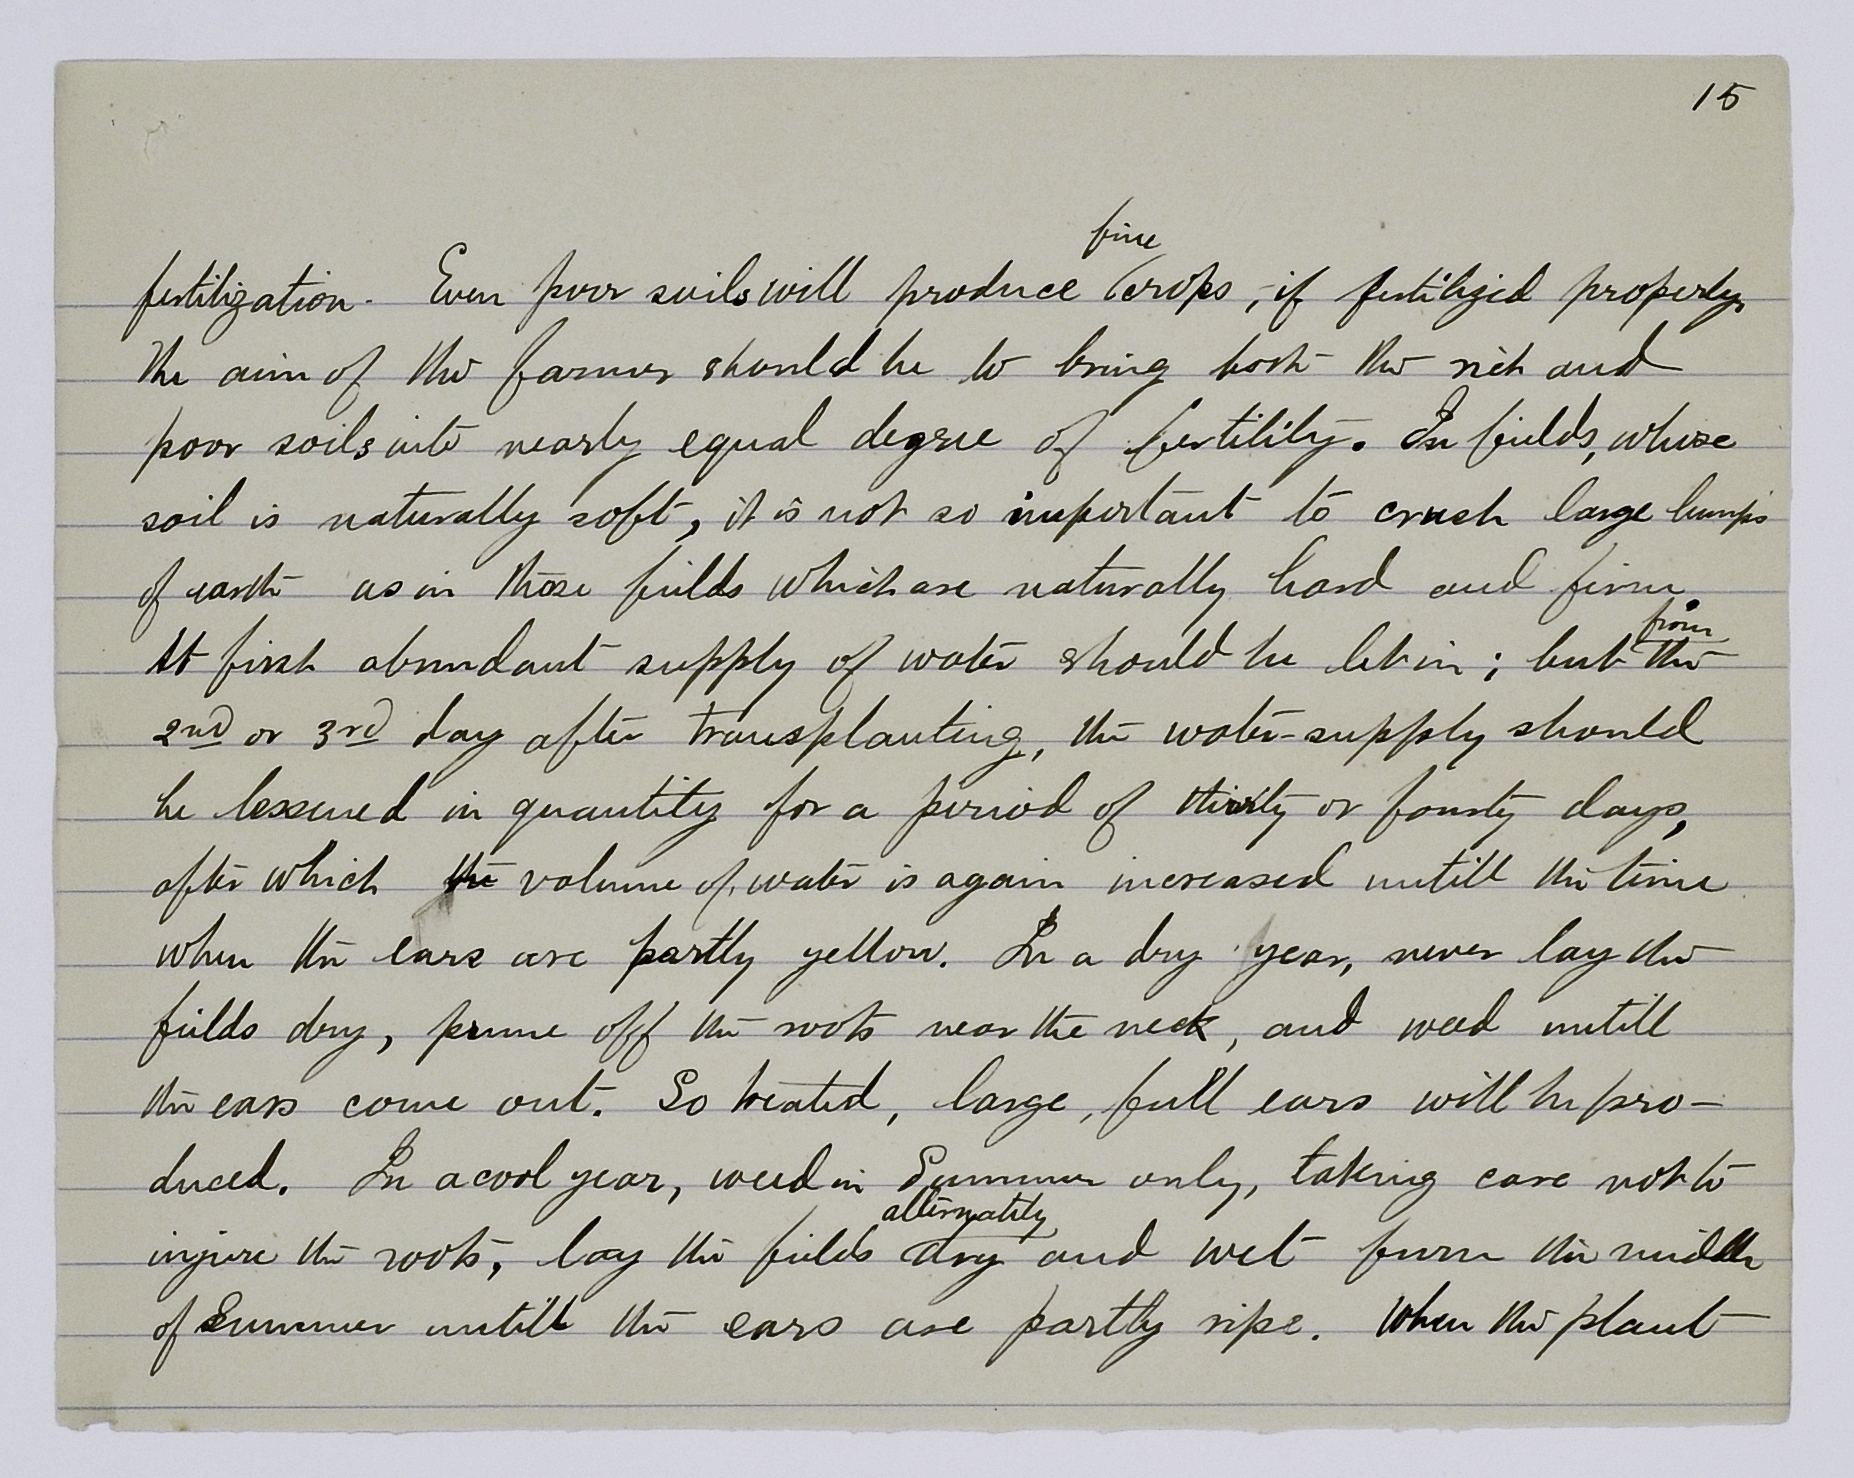 15
fine
fertilization. Even poor soils will produce crops, if fertilized properly.
The aim of the farmer should be to bring both the rich and
poor soils into nearly equal degree of fertility. In fields, whose
soil is naturally soft, it is not so important to crush large lumps
of earth as in those fields which are naturally hard and firm.
from
At first abundant supply of water should be let in; but the
2nd or 3rd day after transplanting, the water-supply should
be lessened in quantity for a period of thirty or fourty days,
after which the volume of water is again increased untill the time
when the ears are partly yellow. In a dry year, never lay the
fields dry, prune off the roots near the neck, and weed untill
the ears come out. So treated, large, full ears will be pro-
duced. In a cool year, weed in Summer only, taking care not to
alternatily
injure the roots, lay the fields dry and wet from the middle
of Summer untill the ears are partly ripe. When the plant